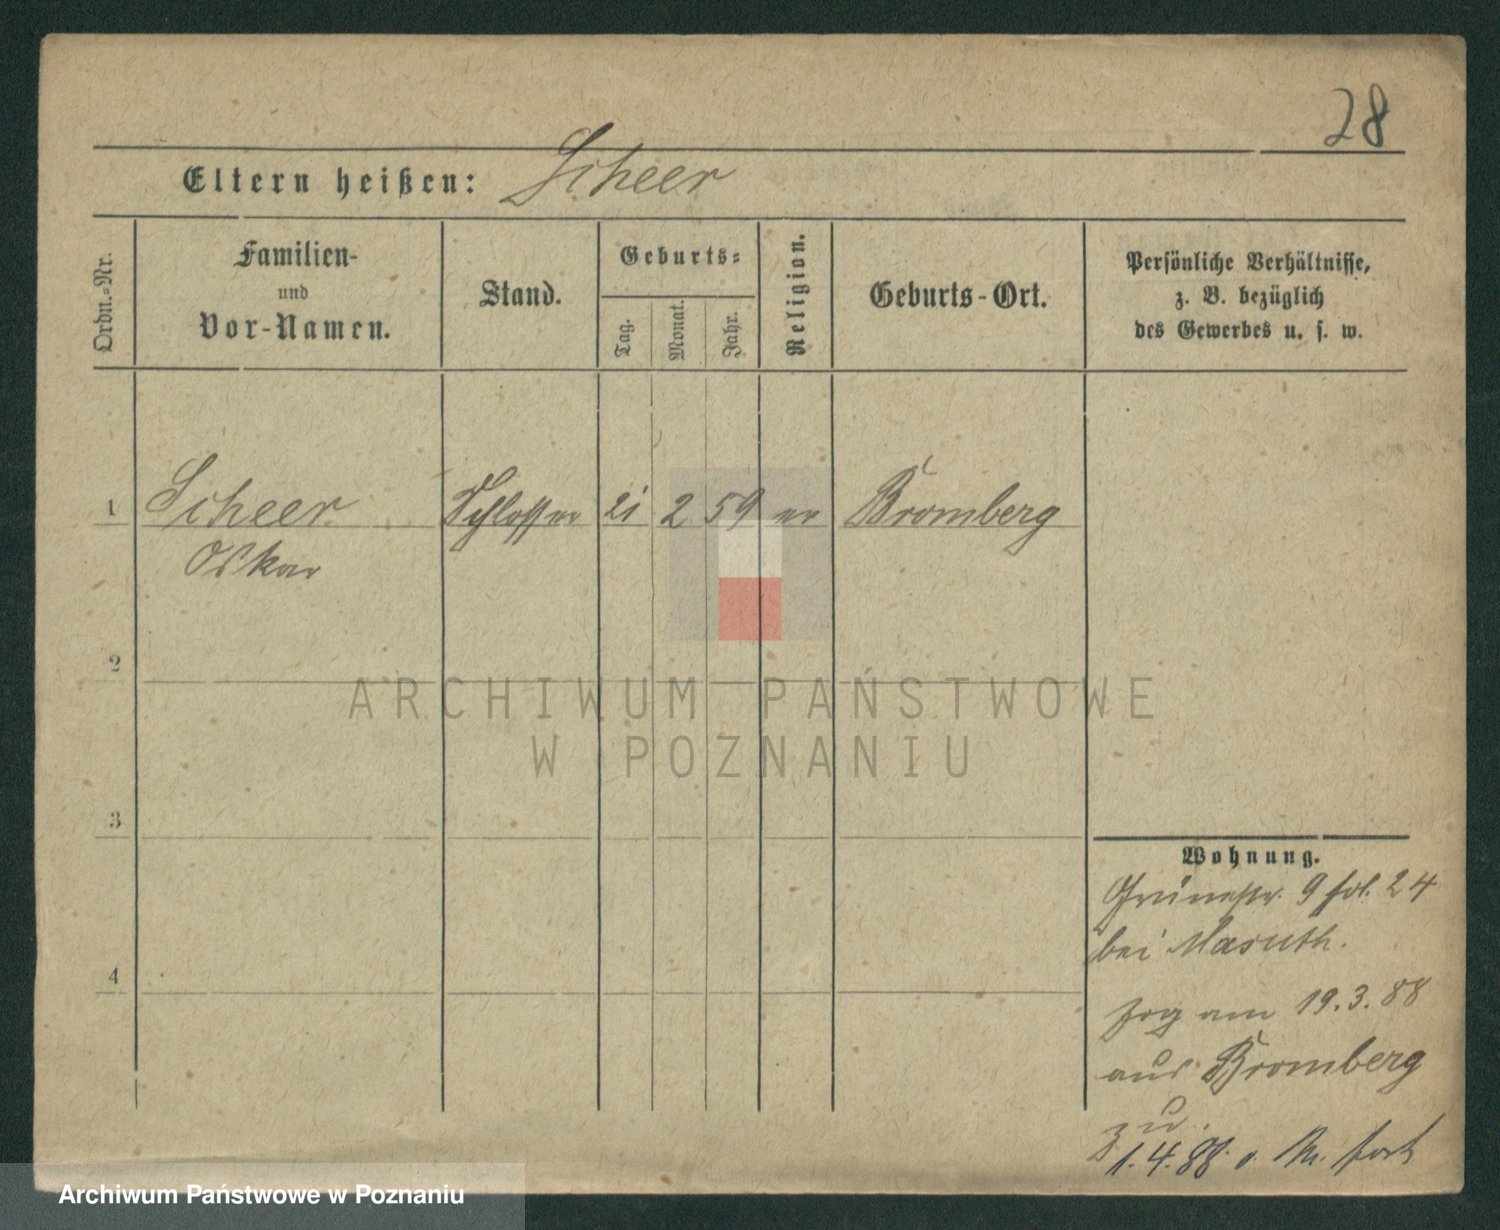 28
Eltern heißen: Scheer
Ordn.-Nr.
Familien-
und
Vor-Namen.
Stand.
Geburts-
Tag.
Monat.
Jahr.
Religion.
Geburts-Ort.
Persönliche Verhältnisse,
z. B. bezüglich
des Gewerbes u. s. w.
1 Scheer Schlosser 21 2 59 ev Bromberg
Oskar
2
3
4
ARCHIWUM PAŃSTWOWE
W POZNANIU
Wohnung.
Grünestr. 9 fol. 24
bei Masuth.
zog am 19.3.88
aus Bromberg
zu.
1.4.88 o. M. fort
Archiwum Państwowe w Poznaniu